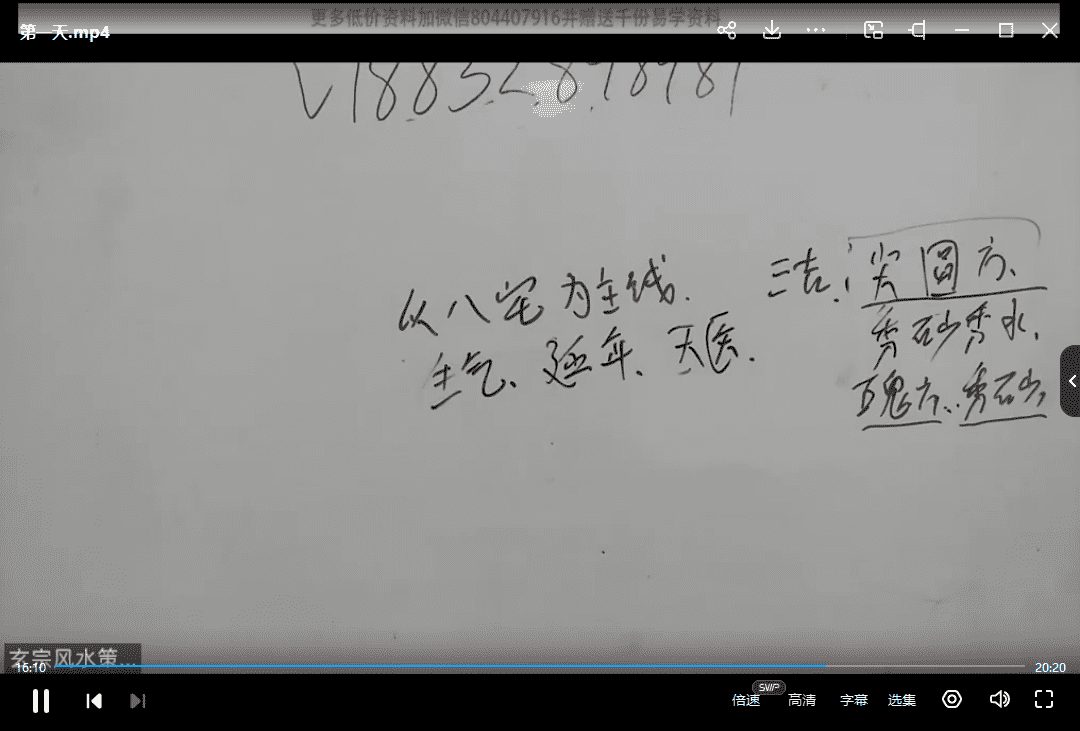 更多低价资料加微信804407916并赠送千份易学资料
第一天.mp4
V18832898981
从八宅为主线.
生气、延年、天医.
三吉:尖圆方、
秀砂秀水,
秀砂,
玄宗风水策...
16:10
20:20
倍速
SVIP
高清
字幕
选集